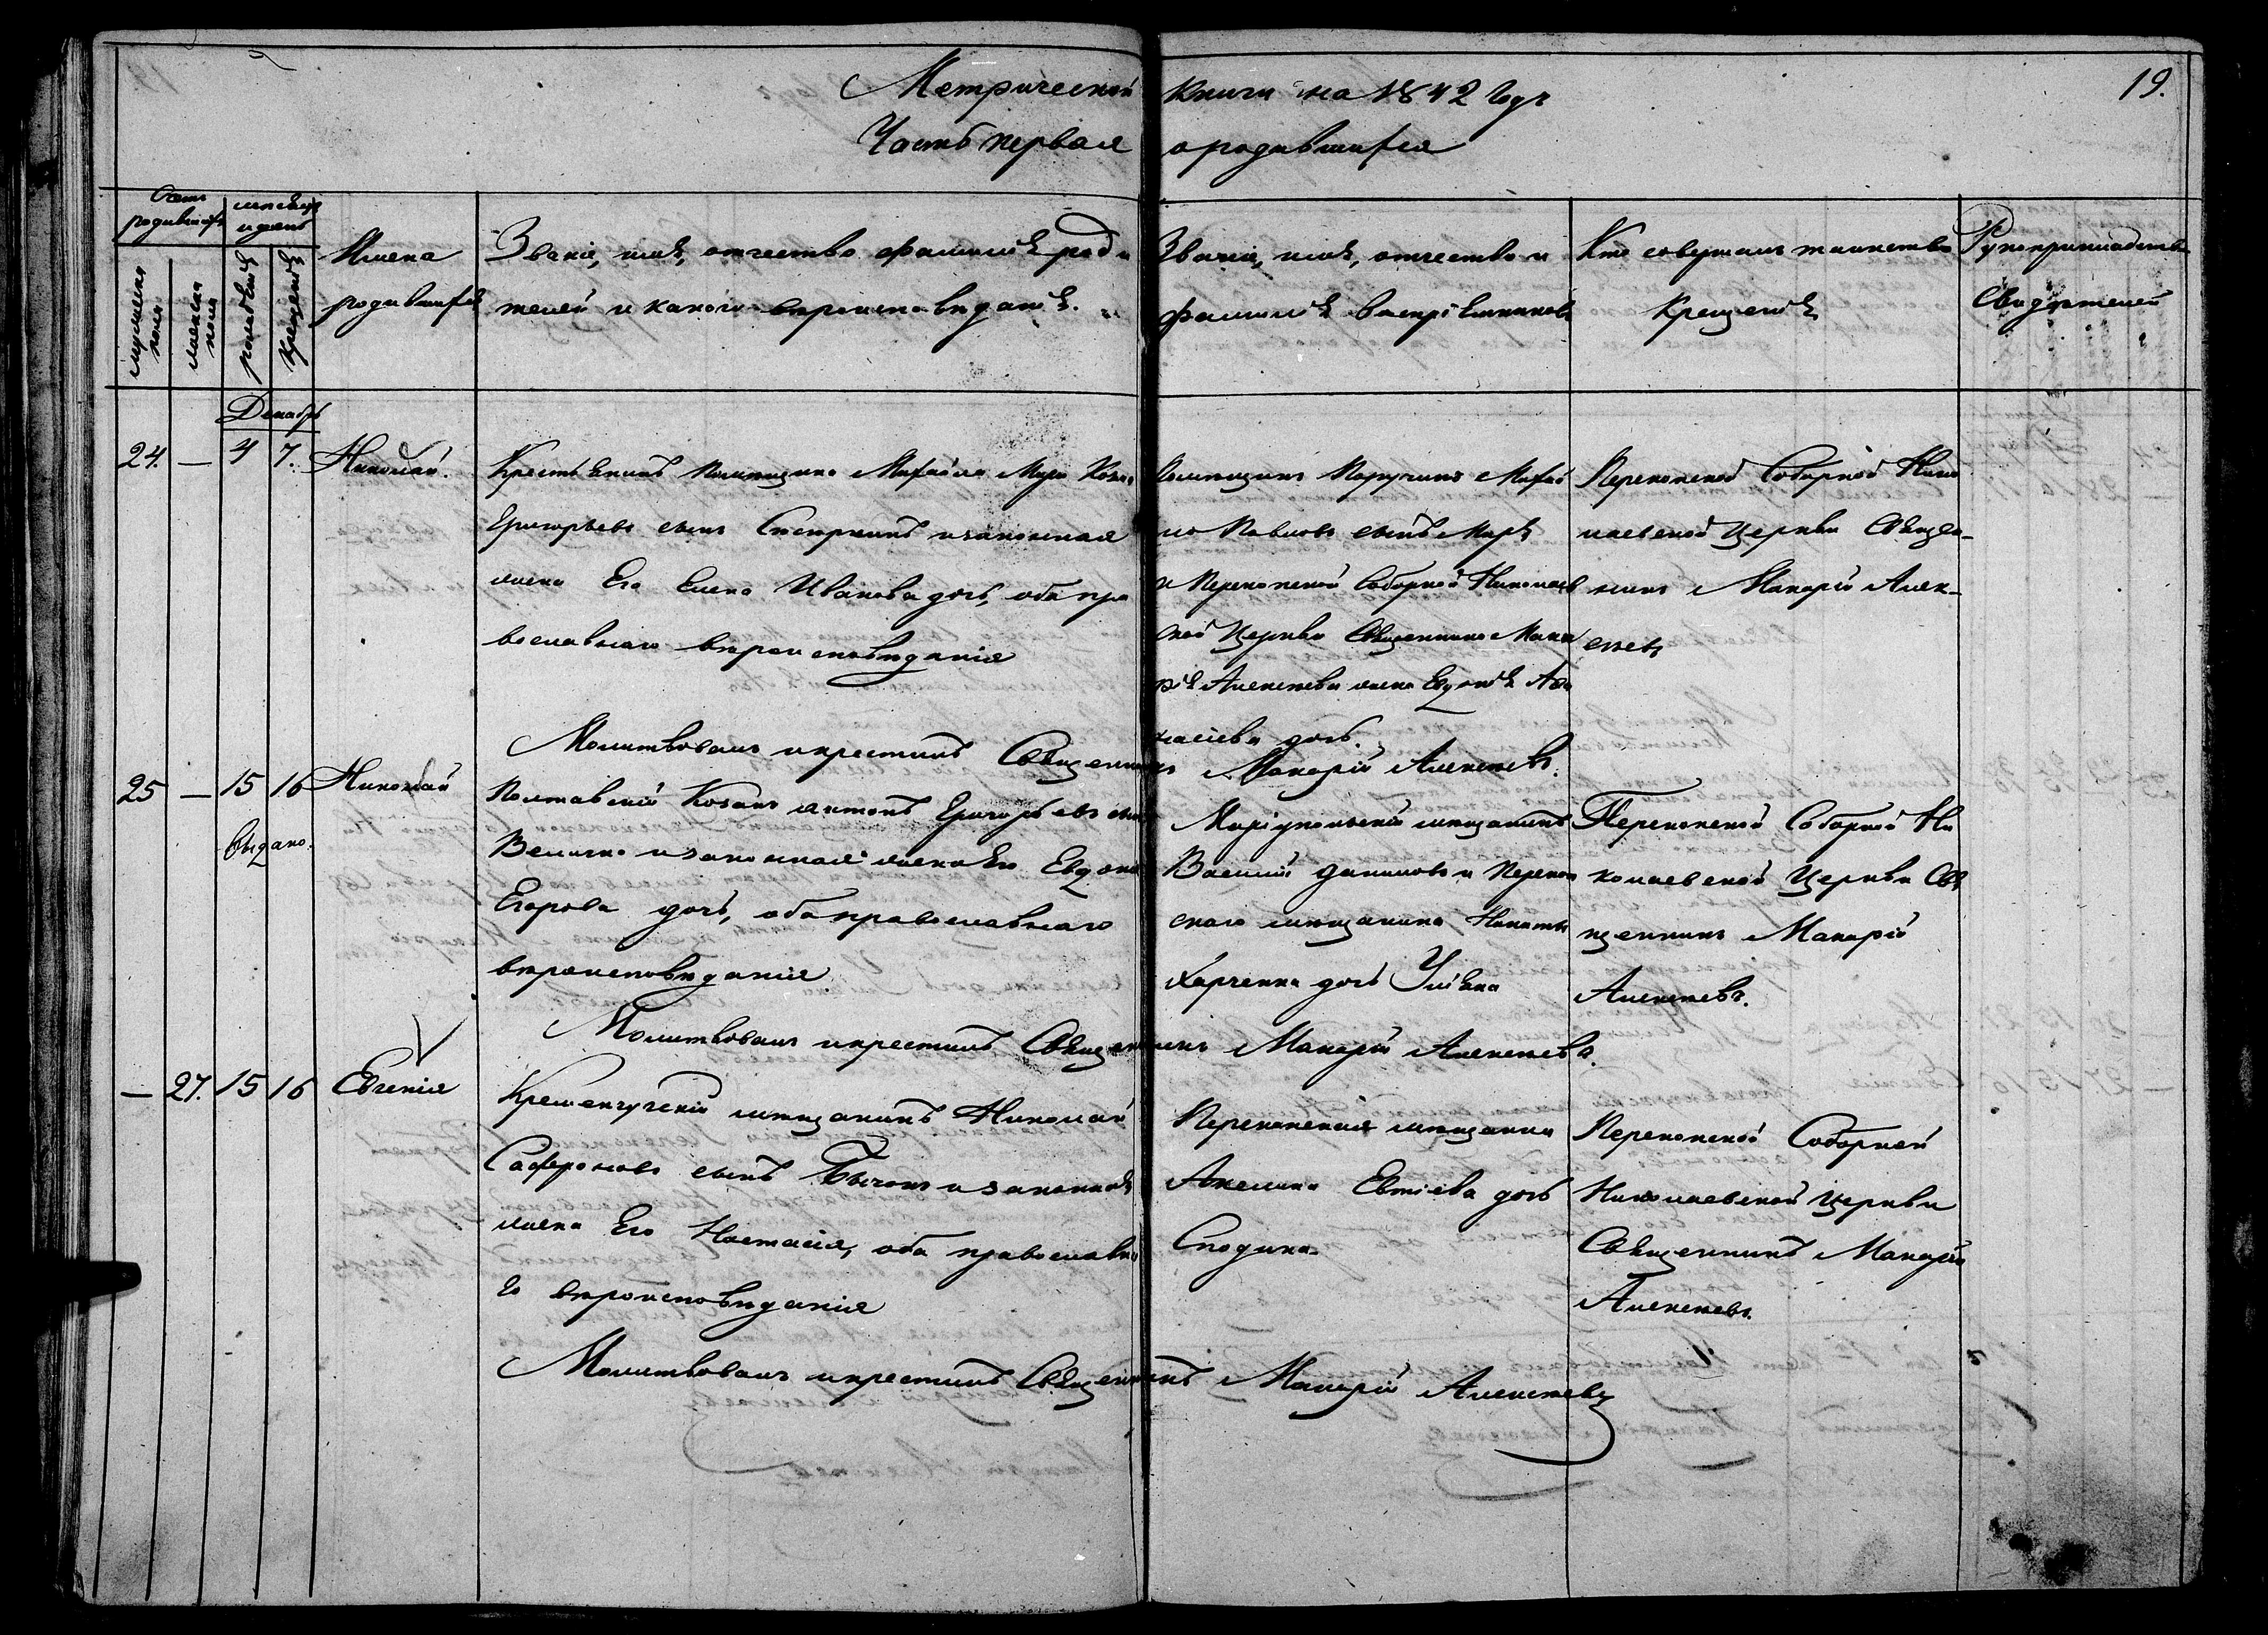 Метрической книги на 1842 годъ
19.
Часть первая о родившихся
Счетъ родившихся
мѣсяцъ и день
мужеска пола
женска пола
рожденія
крещенія
Имена
родившихся
Званіе, имя, отчество фамилія роди
телей и какого вѣроисповѣданія.
Званіе, имя, отчество и
фамилія воспріемниковъ
Кто совершалъ таинство
Крещенія
Рукоприкладство
Свидѣтелей
Декабрь
24. — 4 7. Николай.
Крестьянинъ помѣщика Михайла
Григорьевъ сынъ и законная
жена Его Елена Иванова дочь, оба пра
вославнаго вѣроисповѣданія
Помѣщикъ Поручикъ Михай
ло Павловъ сынъ
и Перекопской Соборной Николаев
ской Церкви Священника Мака
рія Алексѣева жена Евдокія Афа
насіева дочь.
Перекопской Соборной Нико
лаевской Церкви Священ-
никъ Макарій Алек-
сѣевъ
Молитвовалъ и крестилъ Священникъ Макарій Алексѣевъ.
25 — 15 16 Николай
выдано.
Полтавскій Козакъ Антонъ Григорьевъ сынъ
Величко и законная жена Его Евдокія
Егорова дочь, оба православнаго
вѣроисповѣданія
Маріупольскій мѣщанинъ
Василій Даниловъ и Перекоп
скаго мѣщанина Никиты
Харченка дочь Уліяна
Перекопской Соборной Ни
колаевской Церкви Свя
щенникъ Макарій
Алексѣевъ.
Молитвовалъ и крестилъ Священникъ Макарій Алексѣевъ.
— 27. 15 16 Евгенія
Кременчугскій мѣщанинъ Николай
Сафроновъ сынъ и законная
жена Его Настасія, оба православна
го вѣроисповѣданія
Перекопская мѣщанка
Акелина Евтіева дочь
Перекопской Соборной
Николаевской Церкви
Священникъ Макарій
Алексѣевъ.
Молитвовалъ и крестилъ Священникъ Макарій Алексѣевъ